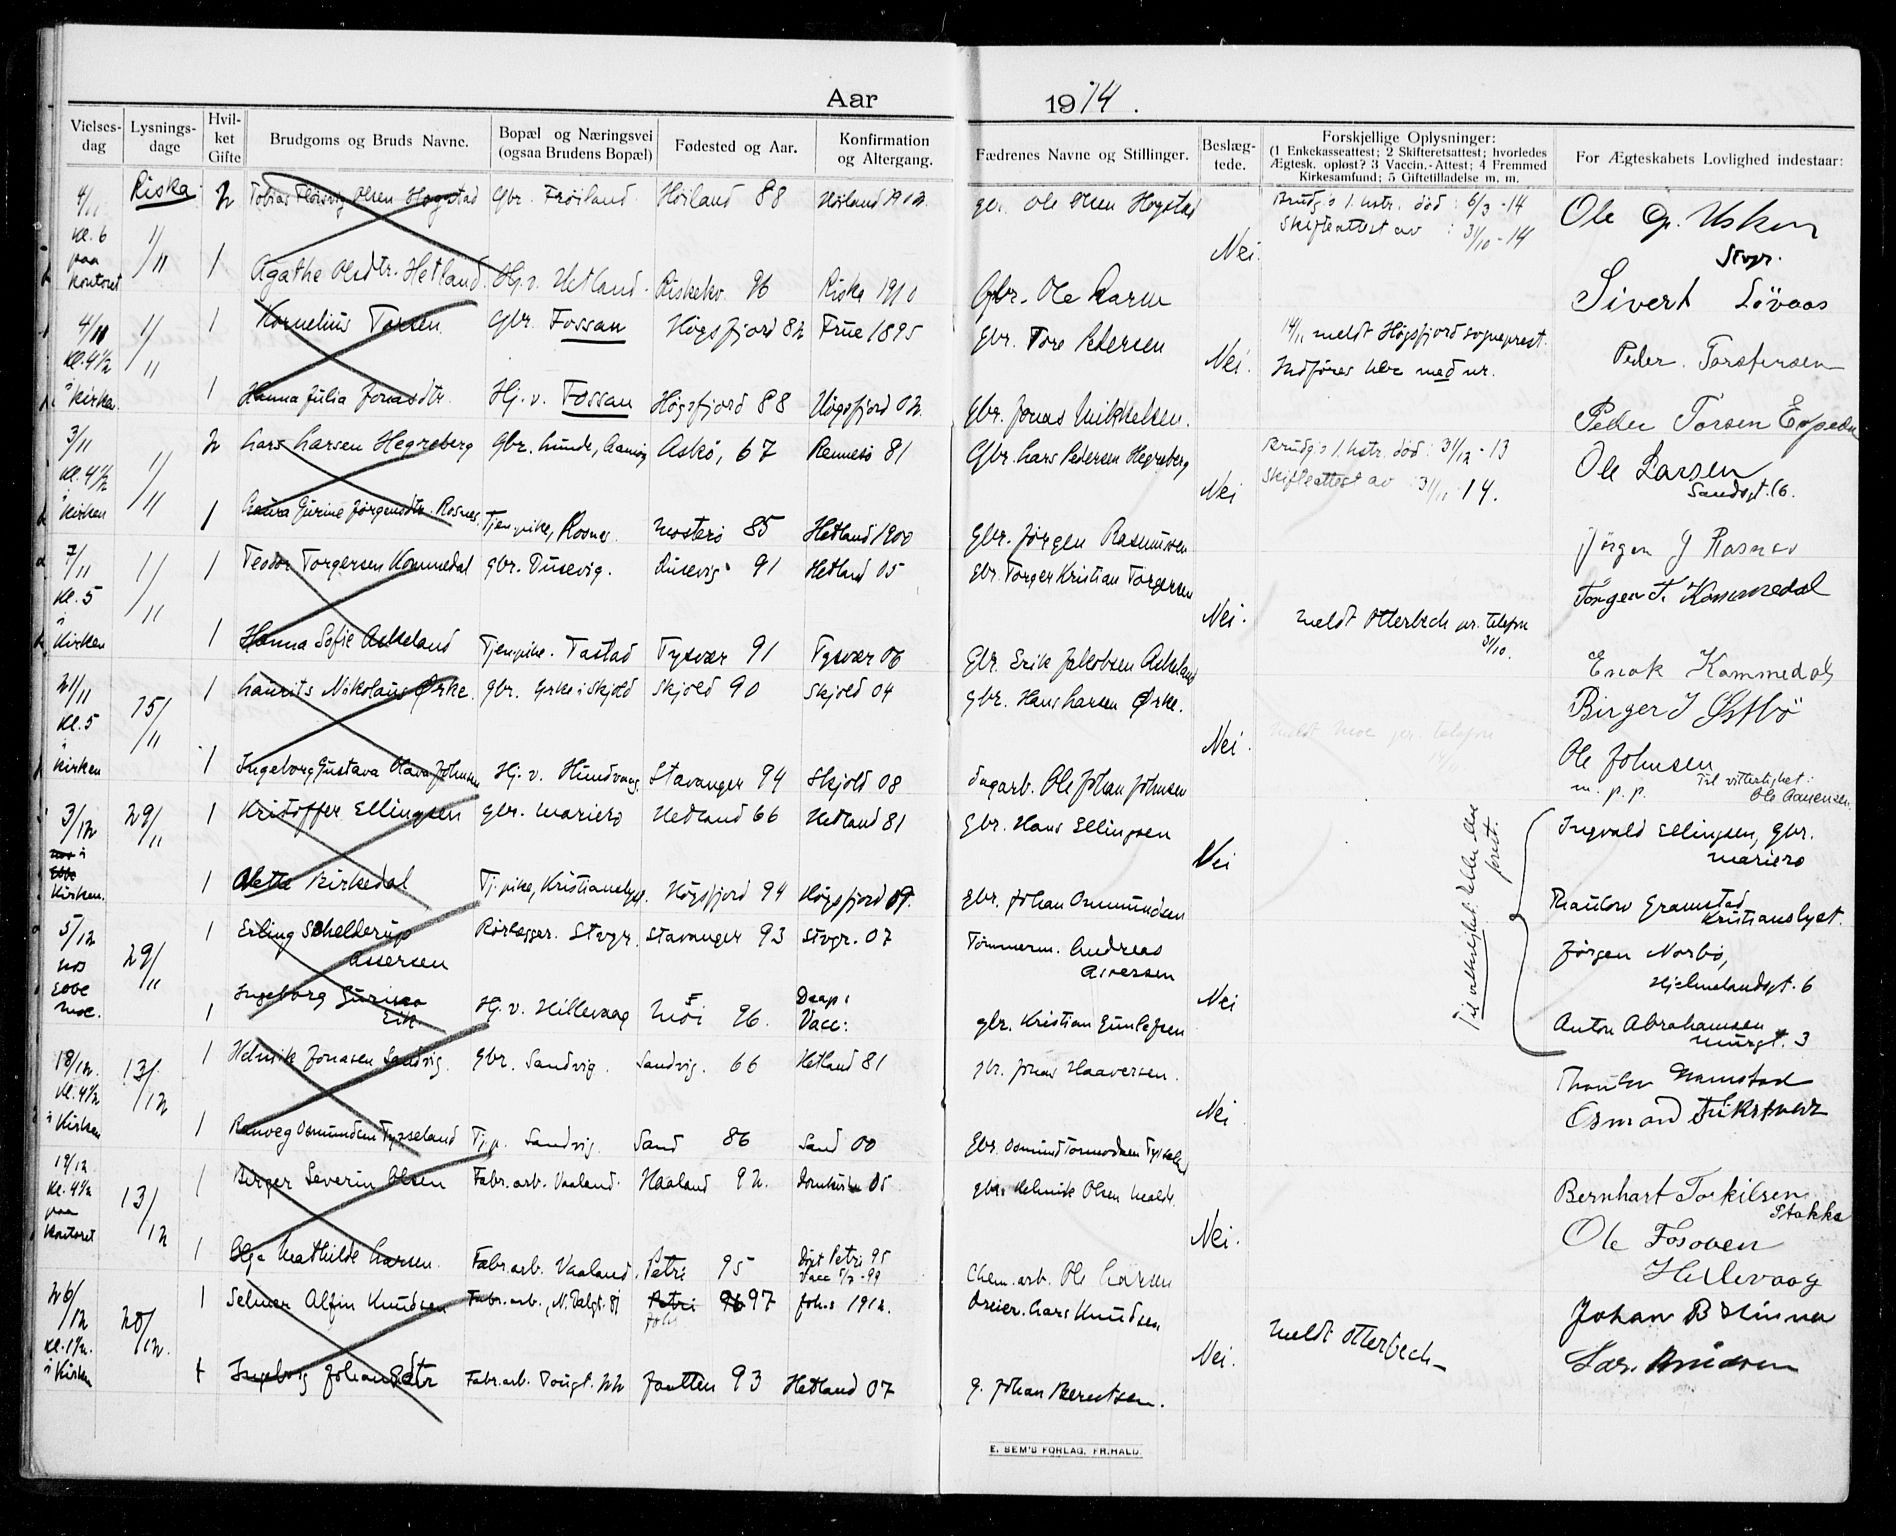 Aar 1914.
Vielses-dag | Lysnings-dage | Hvil-ket Gifte | Brudgoms og Bruds Navne. | Bopæl og Næringsvei (ogsaa Brudens Bopæl) | Fødested og Aar. | Konfirmation og Altergang. | Fædrenes Navne og Stillinger. | Beslæg-tede. | Forskjellige Oplysninger: (1 Enkekasseattest; 2 Skifteretsattest; hvorledes Ægtesk. opløst? 3 Vaccin.-Attest; 4 Fremmed Kirkesamfund; 5 Giftetilladelse m. m. | For Ægteskabets Lovlighed indestaar:
4/11 Kl. 6 paa kontoret | Riska 1/11 | 2 | Tobias Olsen Høgstad | Gbr. Frøiland | Höiland 88 | Höiland | gbr. Ole Olsen Høgstad | Nei. | Brudg's 1. hstr. død: 6/3 -14 Skifteattest av: 31/10 -14 | Ole G. Usken Stvgr.
1 | Agathe Olsdtr. Hetland | Hj. v. Hetland | Riskekv. 96 | Riska 1910 | Gbr. Ole Larsen | Sivert Lövaas
4/11 Kl. 4 1/2 i kirken | 1/11 | 1 | Kornelius Torsen | Gbr. Fossan | Høgsfjord 82 | Frue 1895 | Gbr. Tore Pedersen | Nei. | 14/11 meldt Høgsfjord sogneprest. Indføres uten med nr. | Peder Torstensen
1 | Hanna Julia Jonasdtr. | Hj. v. Fossan | Høgsfjord 88 | Høgsfjord 02 | Gbr. Jonas Mikkelsen. | Peder Torsen
3/11 Kl. 4 1/2 i kirken | 1/11 | 2 | Lars Larsen Hegreberg | Gbr. Lunde, | Askø, 67 | Rennesø 81 | Gbr. Lars Pedersen Hegreberg | Nei | Brudg's 1. hstr. død: 31/12 -13 Skifteattest av 3/11 14. | Ole Larsen Sandsgt. 16.
1 | Laura Gurine Jørgensdtr. Rosnes | Tjen.pike, Rosnes | Mosterø 85 | Hetland 1900 | Gbr. Jørgen Rasmussen | Jörgen J Rasnes
7/11 Kl. 5 i Kirken | 1/11 | 1 | Teodor Torgersen Kommedal | Gbr. Dusevig. | Dusevig 91 | Hetland 05 | Gbr. Torger Kristian Torgersen | Nei. | Meldt Otterbech pr. telefon 31/10. | Torger T. Kommedal
1 | Hanna Sofie Askeland | Tjen.pike. Tastad | Tysvær 91 | Tysvær 06 | Gbr. Erik Jakobsen Askeland | Enok Kommedal
21/11 Kl. 5 i kirken | 15/11 | 1 | Laurits Nikolaus Ørke. | Gbr. Ørke i Skjold | Skjold 90 | Skjold 04 | Gbr. Hans Larsen Ørke. | Nei. | Meldt Moe pr. telefon | Birger J Østbö
1 | Ingeborg Gustava Olava Johnsen | Hj. v. Hundvaag. | Stavanger 94 | Skjold 08 | Dagarb. Ole Johan Johnsen | Ole Johnsen m. p. p. Til vitterlighet: Ole Aanensen.
3/12 Kirken. | 29/11 | 1 | Kristoffer Ellingsen | Gbr. Mariero | Hetland 66 | Hetland 81 | Gbr. Hans Ellingsen | Nei | Ingvald Ellingsen, Gbr. Mariero
1 | Alette Birkedal | Tj. pike, Kristianslyst. | Høgsfjord 94 | Høgsfjord 09. | Gbr. Johan Osmundsen | Thaulow Gramstad Kristianslyst.
5/12 hos Ebbe Moe. | 29/11 | 1 | Erling Schelderup Assersen | Rørlægger. Stvgr. | Stavanger 93 | Stvgr. 07 | Tømmerm. Andreas Assersen | Nei | Jørgen Norbø, Hjelmelandsgt. 6
1 | Ingeborg Eik | Hj. v. Hillevaag | Moi 96. | Daap: Vacc: | gbr. Kristian Gunlefsen | Anton Abrahamsen Murgt. 3
18/12. Kl. 4 1/2 i Kirken | 13/12 | 1 | Helmik Jonasen Sandvig. | Gbr. Sandvig. | Sandvig. 66 | Hetland 81 | gbr. Jonas Haaversen. | Nei | Thaulow Gramstad
1 | Ranveg Osmundsen Tysseland | Tj.p. Sandvig. | Sand 86 | Sand 00 | Gbr. Osmund Tormodsen Tysseland | Osmond
19/12 Kl. 4 1/2 paa kontoret | 13/12 | 1 | Birger Severin Olsen | Fabr.arb. Vaaland. | Haaland 92. | Domkirken 05 | gbr. Helmik Olsen | Nei. | Bernhart Torkilsen Stokka
1 | Olga Mathilde Larsen. | Fabr.arb. Vaaland. | Petri 95 | Døpt Petri 95 Vacc 5/7 -99 | Chem. arb. Ole Larsen | Ole Fosoven Hillevaag
26/12 Kl. 1 1/2. i Kirken | 20/12. | 1 | Selmer Alfin Knudsen | Fabr.arb., N. Dalgt. 81 | Petri 96 97 Joh. | Joh.s 1912. | Dreier. Lars Knudsen | Nei. | Meldt Otterbech | Johan B Hinna
1 | Ingeborg Johansdtr | Fabr.arb. Dougt. 22 | Jaatten 93 | Hetland 07 | g. Johan Berentsen. | Lars. Knudsen
E. SEM'S FORLAG, FR.HALD.